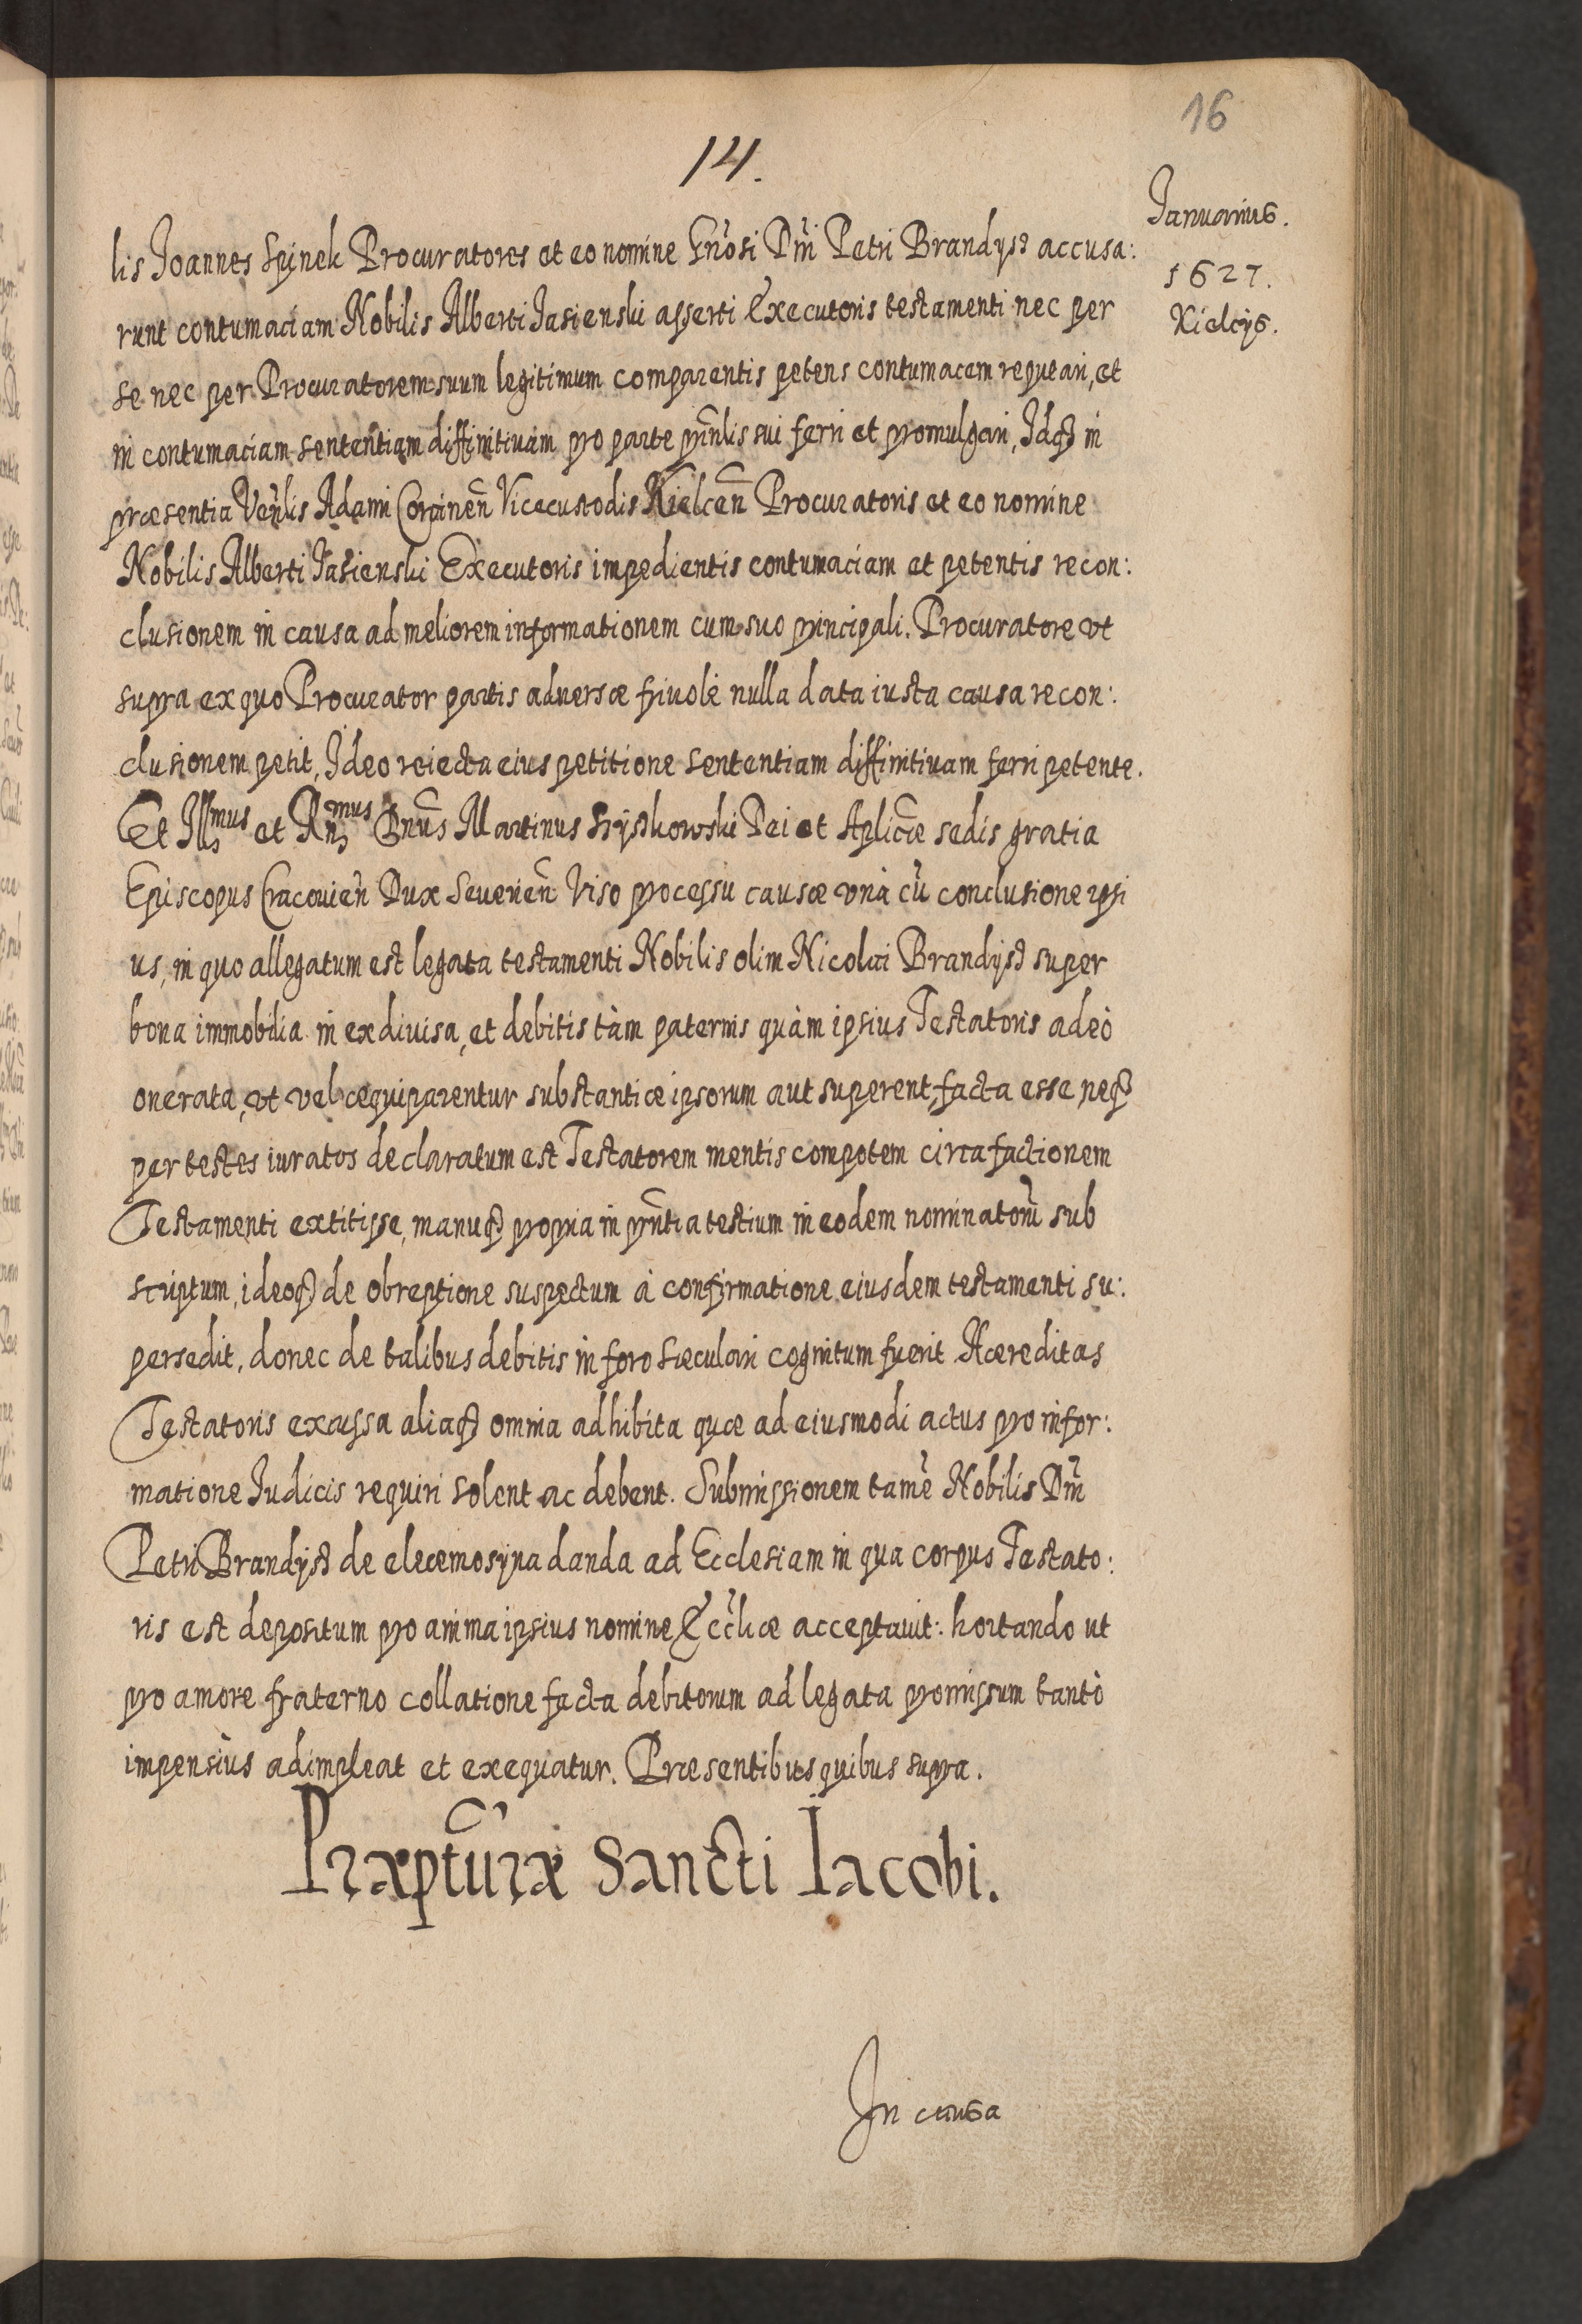 16
14.
Januarius.
1627.
Kielcijs.
lis Joannes Spinek Procuratores et eo nomine Gn̄osi Dn̄i Petri Brandysz accusa:
runt contumaciam Nobilis Alberti Jasienski asserti Executoris testamenti nec per
se nec per Procuratorem suum legitimum comparentis petens contumacem reputari, et
in contumaciam sententiam diffinitiuam pro parte prīnlis sui ferri et promulgari, Idqz in
præsentia Ven̄lis Adami Corcinen̄ Vicecustodis Kielcen̄ Procuratoris et eo nomine
Nobilis Alberti Jasienski Executoris impedientis contumaciam et petentis recon:
clusionem in causa ad meliorem informationem cum suo principali. Procuratore vt
supra ex quo Procurator partis aduersæ friuolè nulla data iusta causa recon:
clusionem petit, Ideo reiecta eius petitione sententiam diffinitiuam ferri petente.
Et Illmus et Rnmus Dnūs Martinus Szyszkowski Dei et Aplicæ sedis gratia
Episcopus Cracouien̄ Dux Seuerien̄ Viso processu causæ vnà cū conclusione ipsi
us, in quo allegatum est legata testamenti Nobilis olim Nicolai Brandysz super
bona immobilia in ex diuisa, et debitis tàm paternis quàm ipsius Testatoris adeò
onerata, vt vel æquiparentur substantiæ ipsorum aut superent, facta esse neqz
per testes iuratos declaratum est Testatorem mentis compotem circa factionem
Testamenti extitisse, manuqz propria in prn̄tia testium in eodem nominatorū sub
scriptum, ideoqz de obreptione suspectum à confirmatione eiusdem testamenti su:
persedit, donec de talibus debitis in foro sæculari cognitum fuerit Hæreditas
Testatoris excussa aliaqz omnia adhibita quæ ad eiusmodi actus pro infor:
matione Judicis requiri solent ac debent. Submissionem tamē Nobilis Dn̄i
Petri Brandysz de eleemosyna danda ad Ecclesiam in qua corpus Testato:
ris est depositum pro anima ipsius nomine Eccl̄iæ acceptauit: hortando ut
pro amore fraterno collatione facta debitorum ad legata promissum tantò
impensiùs adimpleat et exequatur. Præsentibus quibus supra.
Præptūræ Sancti Jacobi.
In causa